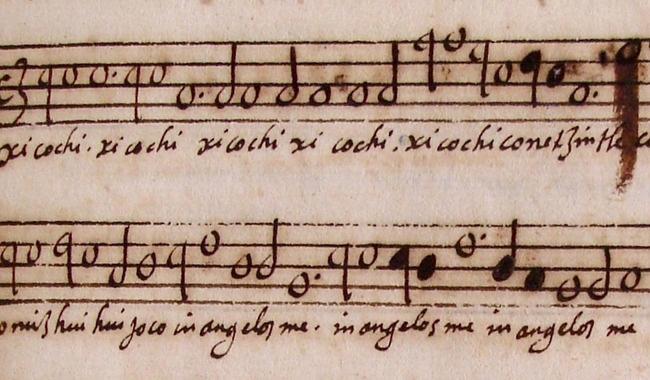 xi cochi. xi cochi xi cochi xi cochi. xi cochi conetzintle
huihui joco in angelos me. in angelos me in angelos me